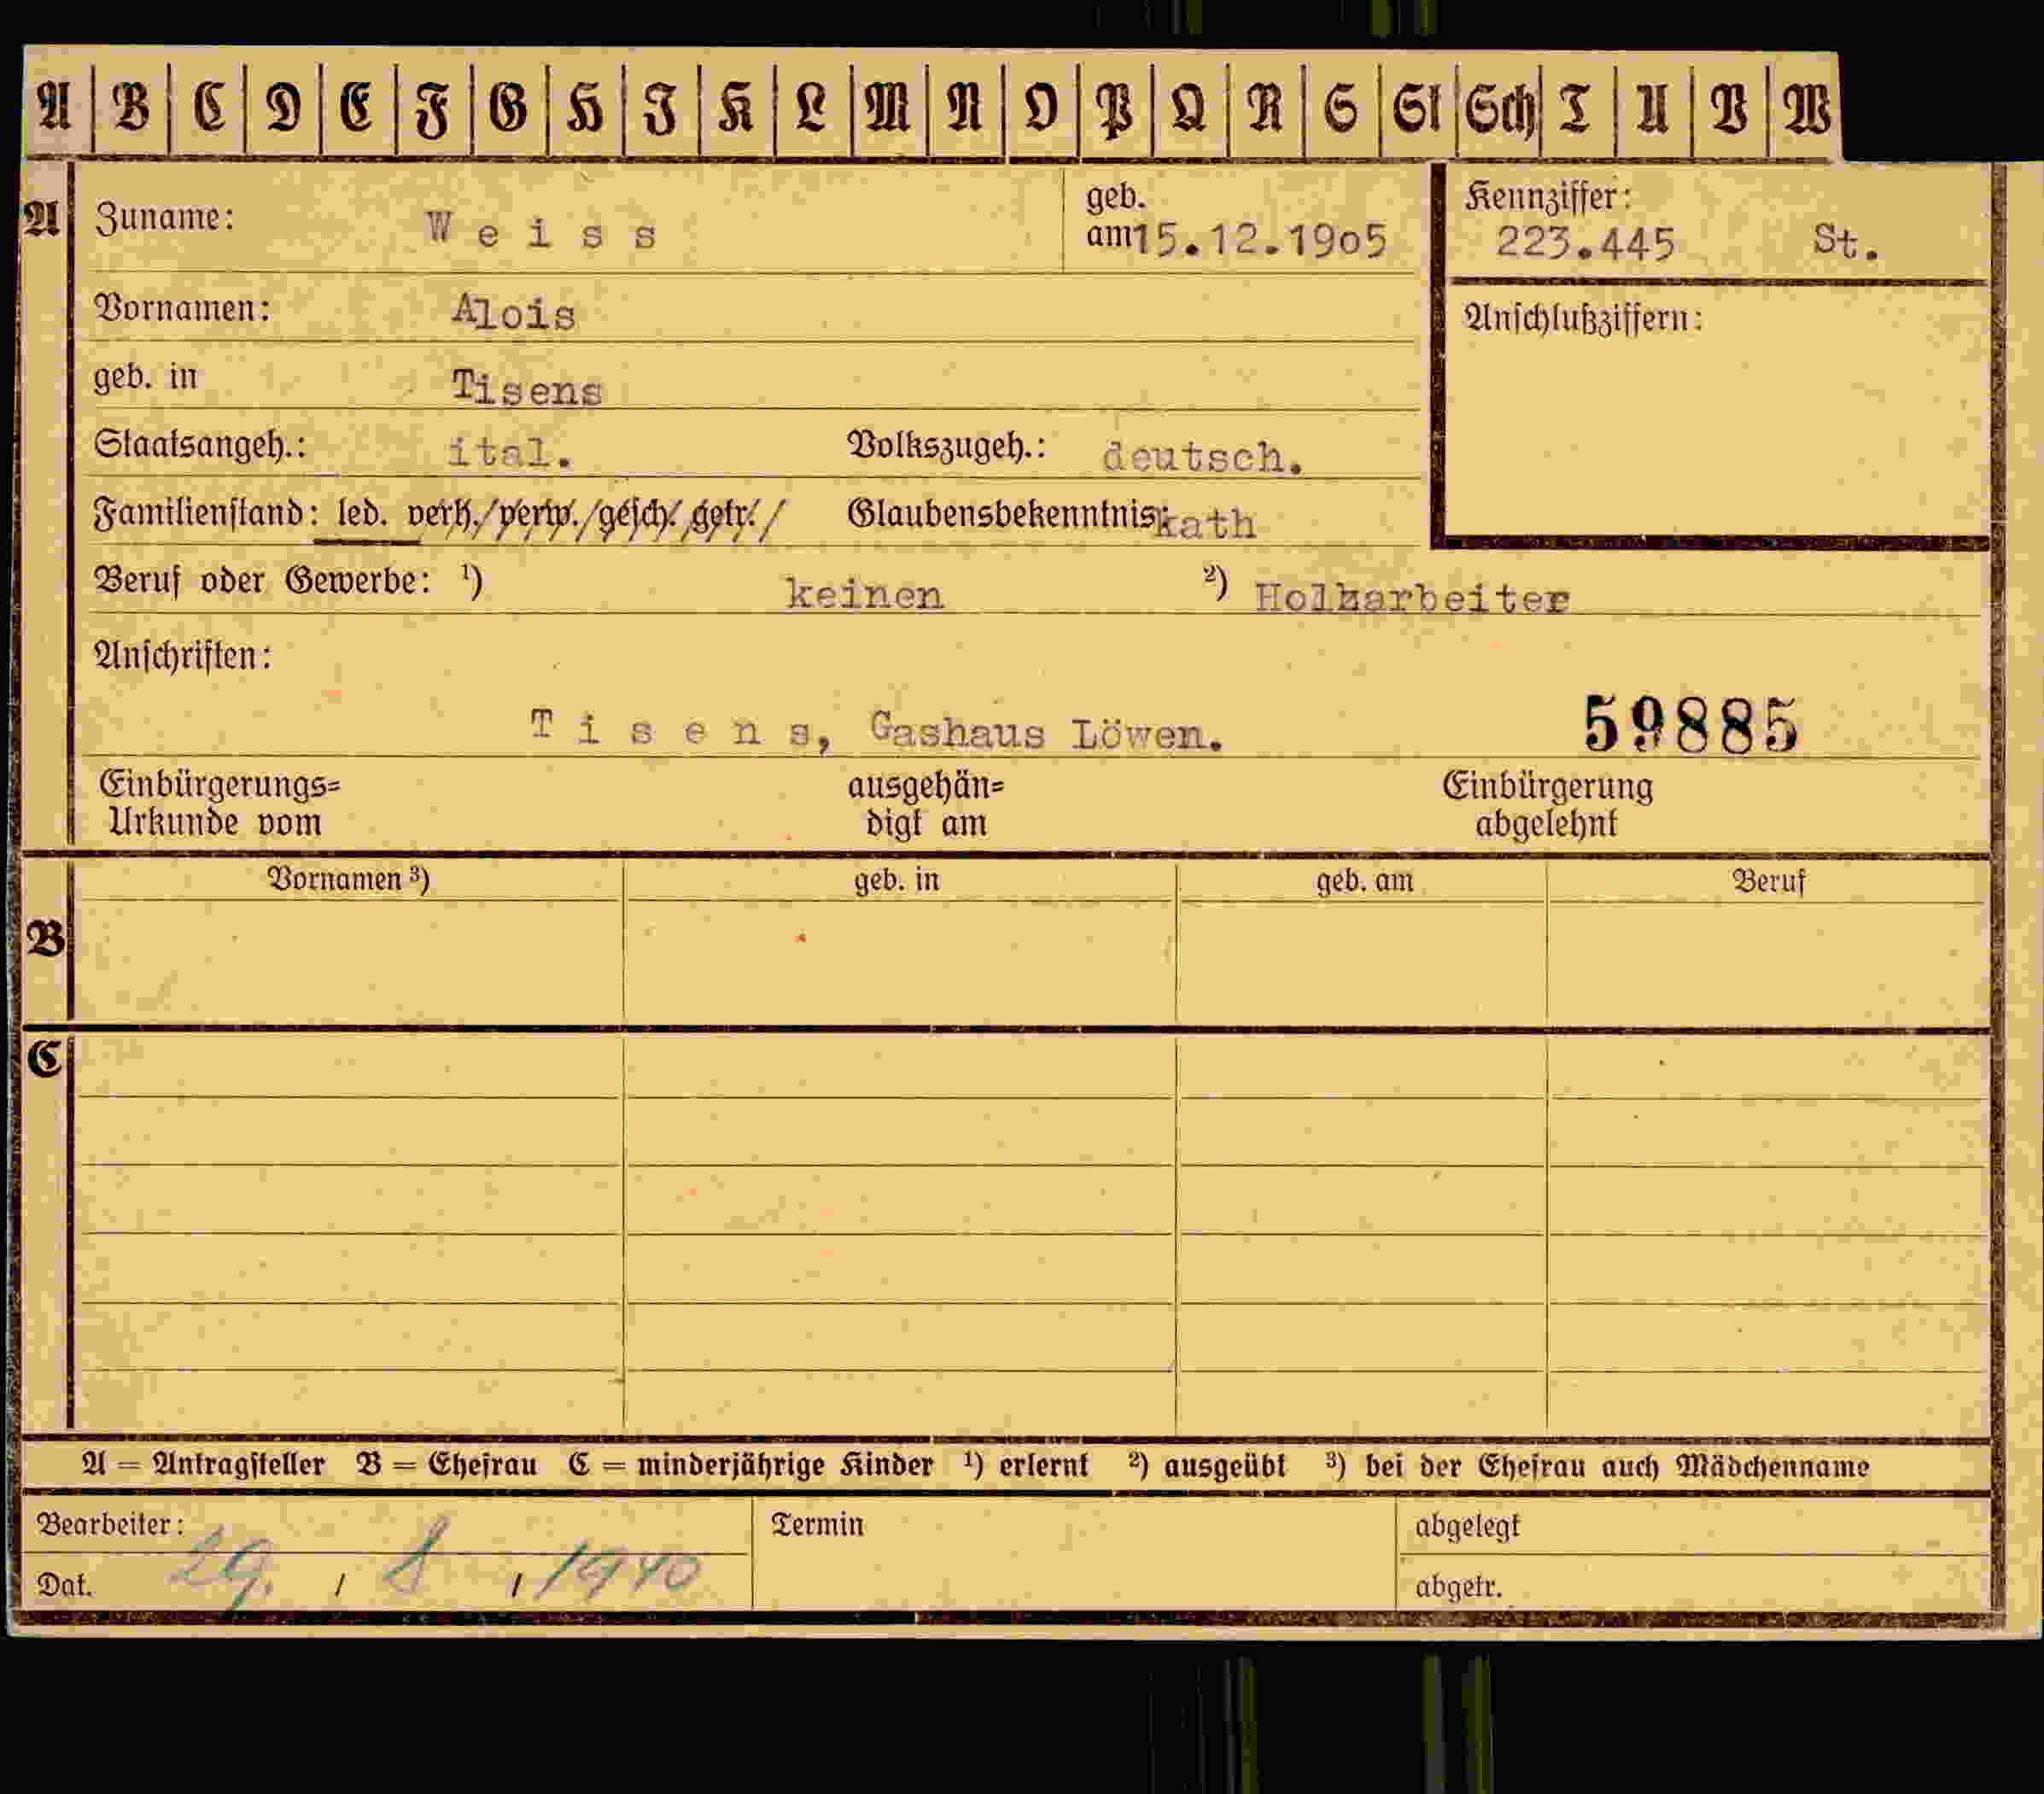 A B C D E F G H J K L M N O P Q R S St Sch T U V W
A Zuname: Weiss geb. am 15.12.19o5 Kennziffer: 223.445 St.
Vornamen: Alois Anschlußziffern:
geb. in Tisens
Staatsangeh.: ital. Volkszugeh.: deutsch.
Familienstand: led. verh./verw./gesch./getr./ Glaubensbekenntnis: kath
Beruf oder Gewerbe: ¹) keinen ²) Holzarbeiter
Anschriften:
Tisens, Gashaus Löwen. 59885
Einbürgerungs= ausgehän= Einbürgerung
Urkunde vom digt am abgelehnt
Vornamen ³) geb. in geb. am Beruf
B
C
A = Antragsteller B = Ehefrau C = minderjährige Kinder ¹) erlernt ²) ausgeübt ³) bei der Ehefrau auch Mädchenname
Bearbeiter: Termin abgelegt
Dat. 29. / 8 / 1940 abgetr.